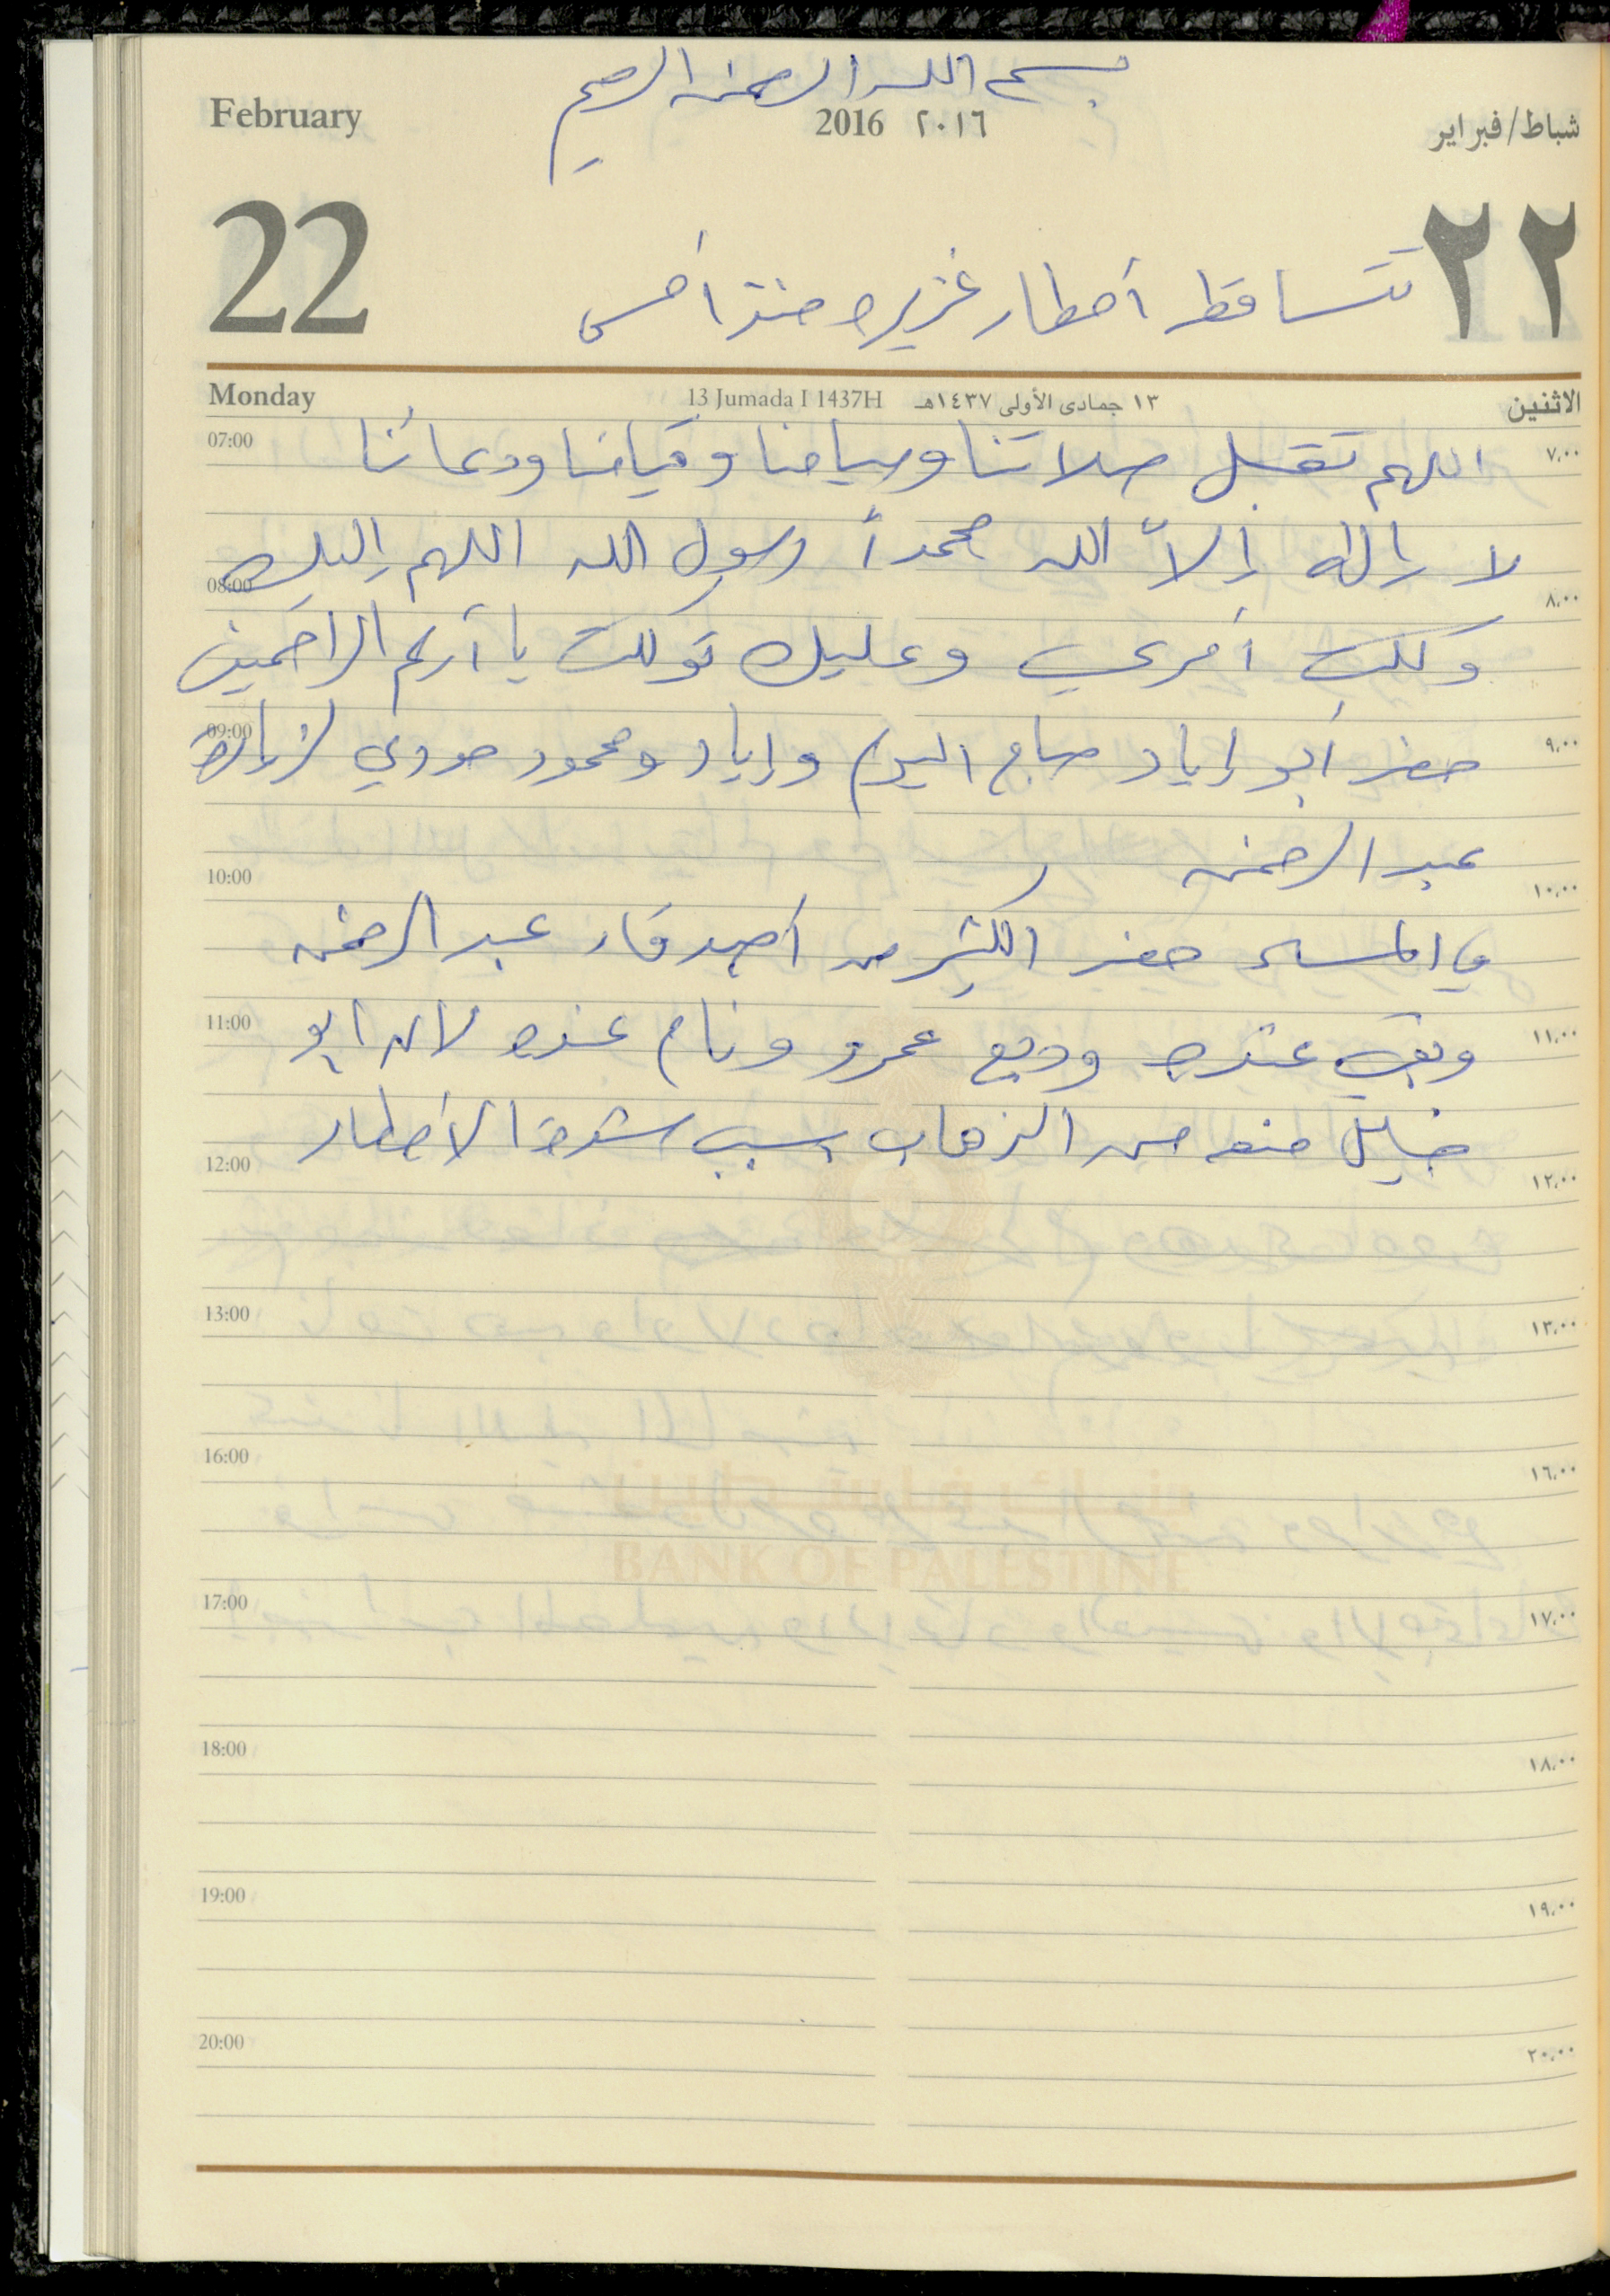 بسم الله الرحمن الرحيم
February 2016 ٢٠١٦ شباط/فبراير
22 ٢٢
تتساقط أمطار غزيره منذ أمس
Monday 13 Jumada I 1437H ١٣ جمادى الأولى ١٤٣٧هـ الاثنين
07:00 ٧,٠٠
اللهم تقبل صلاتنا وصيامنا وقيامنا ودعائنا
لا إله إلاّ الله محمداً رسول الله اللهم إليك
08:00 ٨,٠٠
وكلت أمري وعليك توكلت يا أرحم الراحمين
09:00 ٩,٠٠
حضر أبو إياد صباح اليوم وإياد ومحمود حوري لزيارة
عبد الرحمن
10:00 ١٠,٠٠
في المساء حضر الكثير من أصدقاء عبد الرحمن
11:00 ١١,٠٠
وبقي عنده وديع عمرو ونام عنده لان ابو
خليل منعه من الذهاب بسبب شدة الأمطار
12:00 ١٢,٠٠
13:00 ١٣,٠٠
16:00 ١٦,٠٠
بنك فلسطين
BANK OF PALESTINE
17:00 ١٧,٠٠
18:00 ١٨,٠٠
19:00 ١٩,٠٠
20:00 ٢٠,٠٠